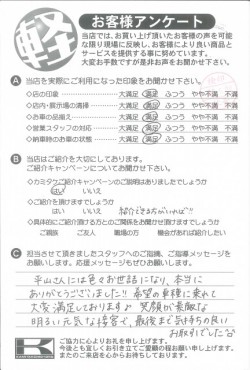 軽
お客様アンケート
当店では、お買い上げ頂いたお客様の声を可能
な限り現場に反映し、お客様により良い商品と
サービスを提供する事に努めています。
大変お手数ですが是非お声をお聞かせ下さい。
A 当店を実際にご利用になった印象をお聞かせ下さい。
◇店の印象 ◇大満足 満足 ふつう やや不満 不満
◇店内・展示場の清掃 ◇大満足 満足 ふつう やや不満 不満
◇お車の品揃え ◇大満足 満足 ふつう やや不満 不満
◇営業スタッフの対応 ◇大満足 満足 ふつう やや不満 不満
◇納車時のお車の状態 ◇大満足 満足 ふつう やや不満 不満
B 当店はご紹介を大切にしております。
ご紹介キャンペーンについてお聞かせ下さい。
◇カミタケご紹介キャンペーンのご説明はありましたでしょうか
はい いいえ
◇ご紹介を頂けますでしょうか
はい いいえ 紹介できる方がいれば!!
◇具体的にご紹介頂ける方とのご関係をお聞かせ頂けますでしょうか
ご親族 ご友人 職場の方 機会があれば紹介したい
C 担当させて頂きましたスタッフへのご指摘、ご指導、メッセージを
お願いします。応援メッセージもぜひお願いします。
平山さんには色々お世話になり、本当に
ありがとうございました!! 希望の車種に乗れて
大変満足しております♪ 笑顔が素敵な
明るい元気な接客で、最後まで気持ちの良い
お取引でした
K
ご協力に心よりお礼を申し上げます。
今後とも宜しくお引き立てご愛顧の程お願い申し上げます。
またのご来店を心からお待ちしております。